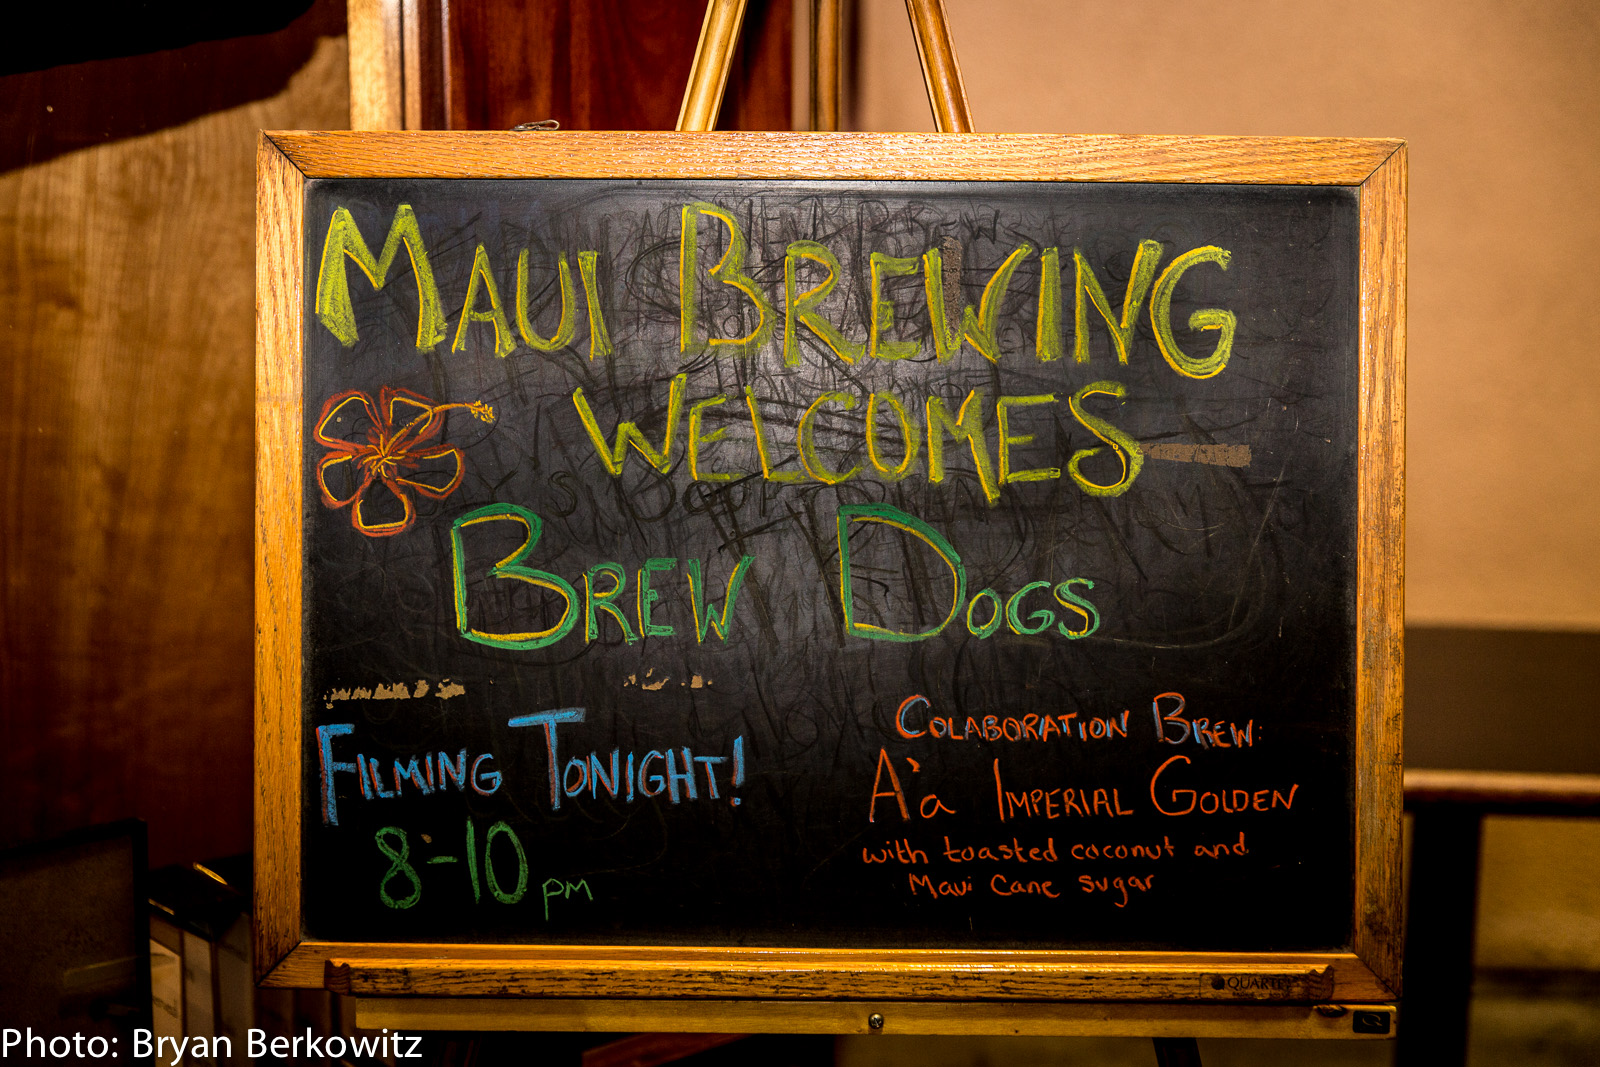 MAUI BREWING
WELCOMES
BREW DOGS
FILMING TONIGHT!
8-10 PM
COLABORATION BREW:
A'a IMPERIAL GOLDEN
with toasted coconut and
Maui Cane sugar
QUARTET
Photo: Bryan Berkowitz